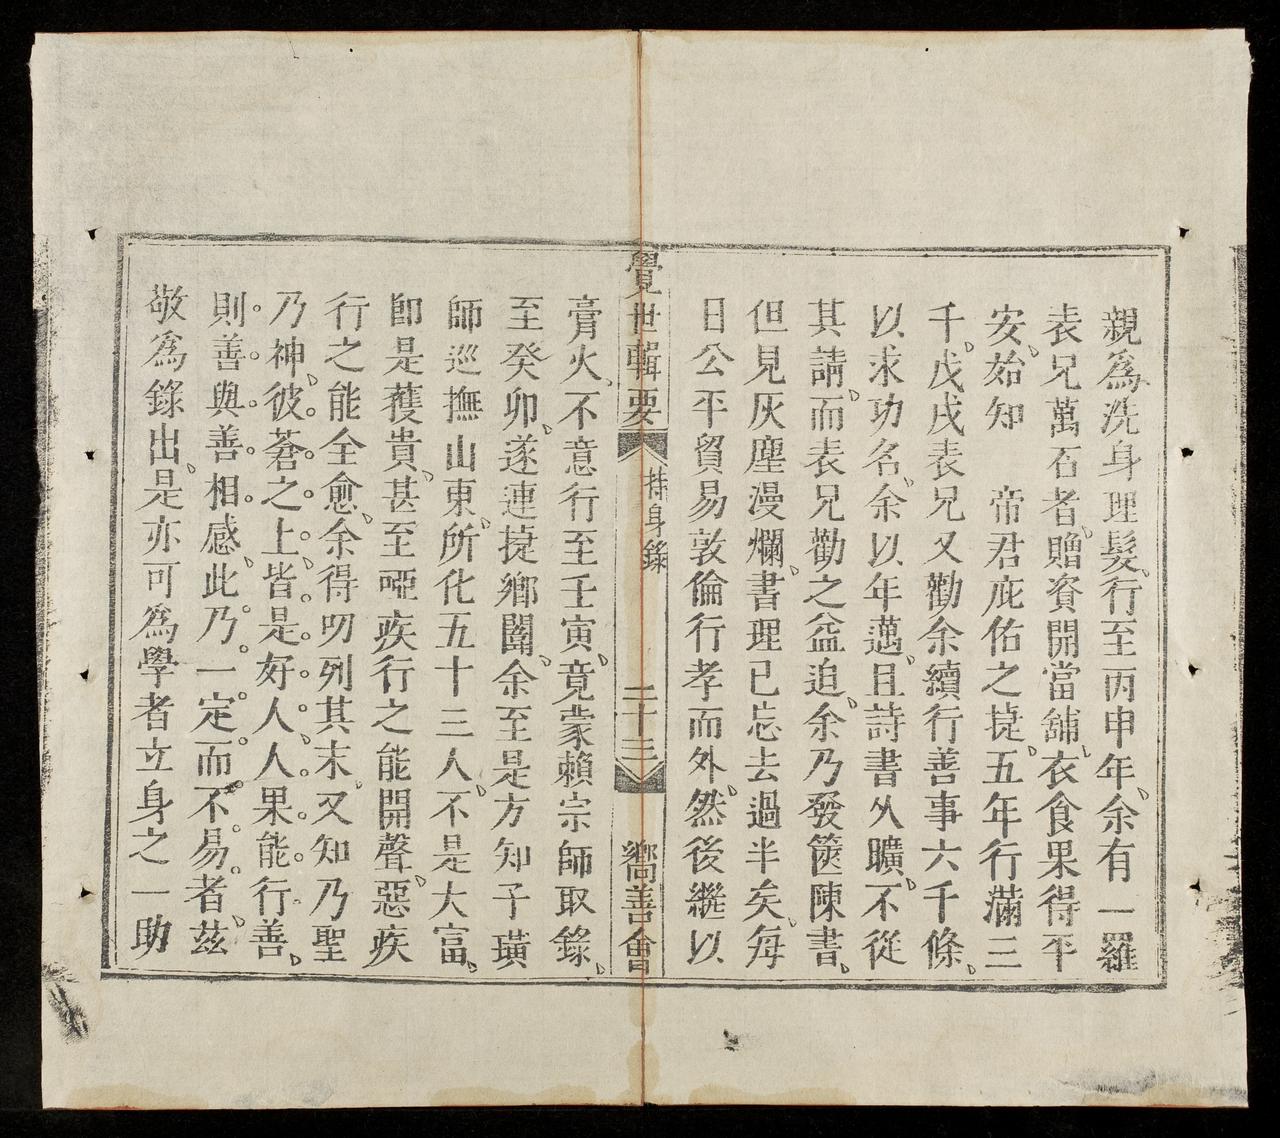 親爲洗身理髮、行至丙申年、余有一羅
表兄萬石者、贈資開當舖、衣食果得平
安、始知　帝君庇佑之㨗、五年行滿三
千、戊戌表兄又勸余續行善事六千條、
以求功名、余以年邁、且詩書久曠、不從
其請、而表兄勸之益迫、余乃發篋陳書、
但見灰塵漫爛、書理已忘去過半矣、每
日公平貿易敦倫行孝而外、然後繼以
覺世輯要　持身錄　二十三　嚮善會
膏火、不意行至壬寅、竟蒙賴宗師取錄、
至癸卯、遂連㨗鄉闈、余至是方知子璜
師巡撫山東、所化五十三人、不是大富、
卽是獲貴、甚至啞疾行之能開聲、惡疾
行之能全愈、余得叨列其末、又知乃聖
乃神、彼蒼之上、皆是好人、人果能行善、
則善與善相感、此乃一定而不易者、茲
敬爲錄出、是亦可爲學者立身之一助